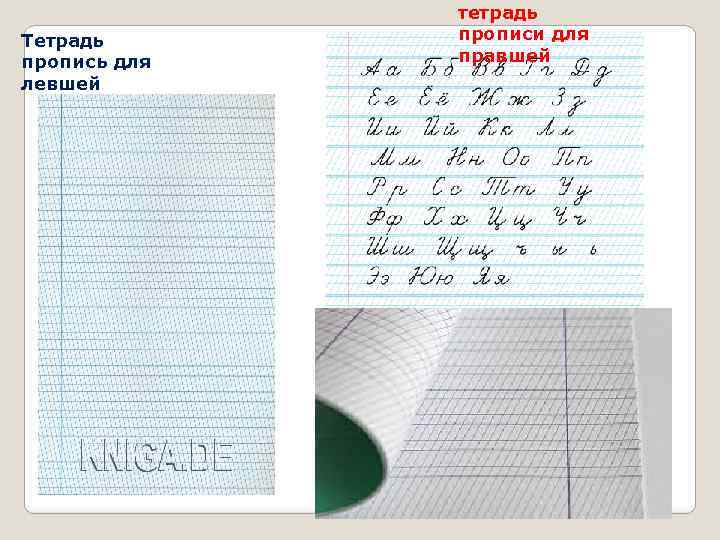 Тетрадь
пропись для
левшей
KNIGA.DE
тетрадь
прописи для
правшей
Аа Бб Вв Гг Дд
Ее Ёё Жж Зз
Ии Йй Кк Лл
Мм Нн Оо Пп
Рр Сс Тт Уу
Фф Хх Цц Чч
Шш Щщ ъ ы ь
Ээ Юю Яя